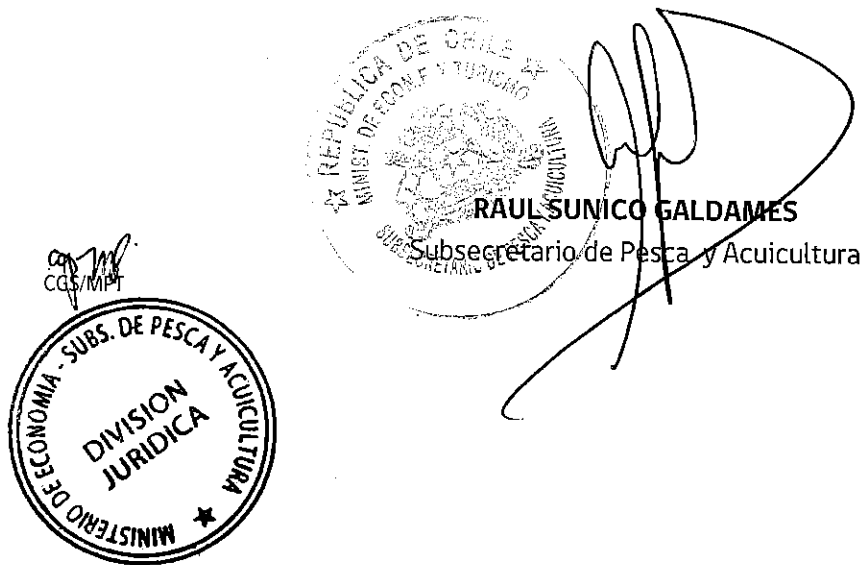 REPUBLICA DE CHILE
MINIST. DE ECON. F. Y TURISMO
SUBSECRETARIO DE PESCA Y ACUICULTURA
RAUL SUNICO GALDAMES
Subsecretario de Pesca y Acuicultura
CGS/MPT
MINISTERIO DE ECONOMIA - SUBS. DE PESCA Y ACUICULTURA
DIVISION
JURIDICA